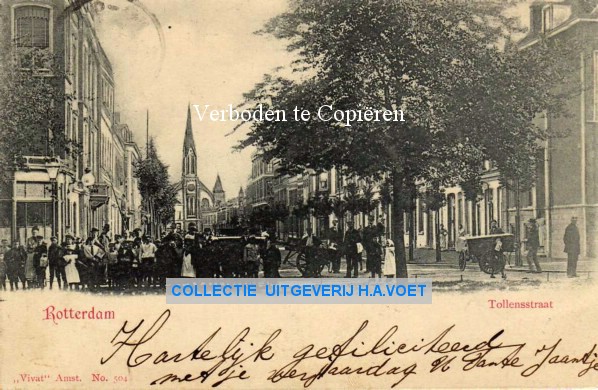 Verboden te Copiëren
COLLECTIE UITGEVERIJ H.A.VOET
Rotterdam
Tollensstraat
Hartelijk gefeliciteerd
met je verjaardag Tante Jaantje
„Vivat" Amst. No. 504